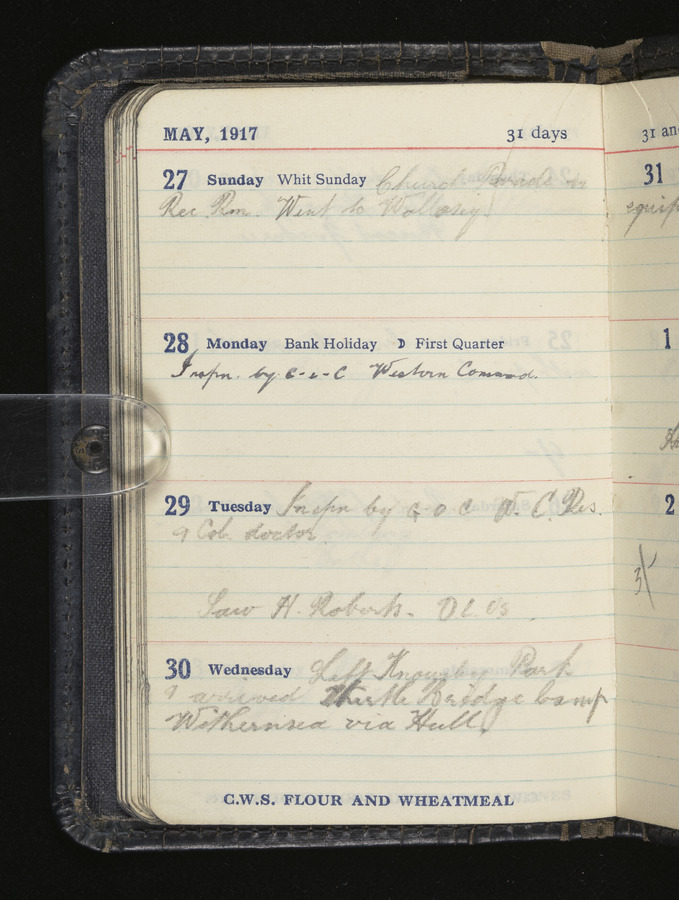 MAY, 1917 31 days
27 Sunday Whit Sunday Church Parade in
Rec. Rm. Went to Wallasey
28 Monday Bank Holiday ☽ First Quarter
Inspn. by C-i-C Western Command.
29 Tuesday Inspn by G O C W. C. Des.
& Col. doctor
Saw H. Roberts.
30 Wednesday Left Knowsley Park
& arrived Thirtle Bridge Camp
Withernsea via Hull
C.W.S. FLOUR AND WHEATMEAL
31 an
31
equip
1
2